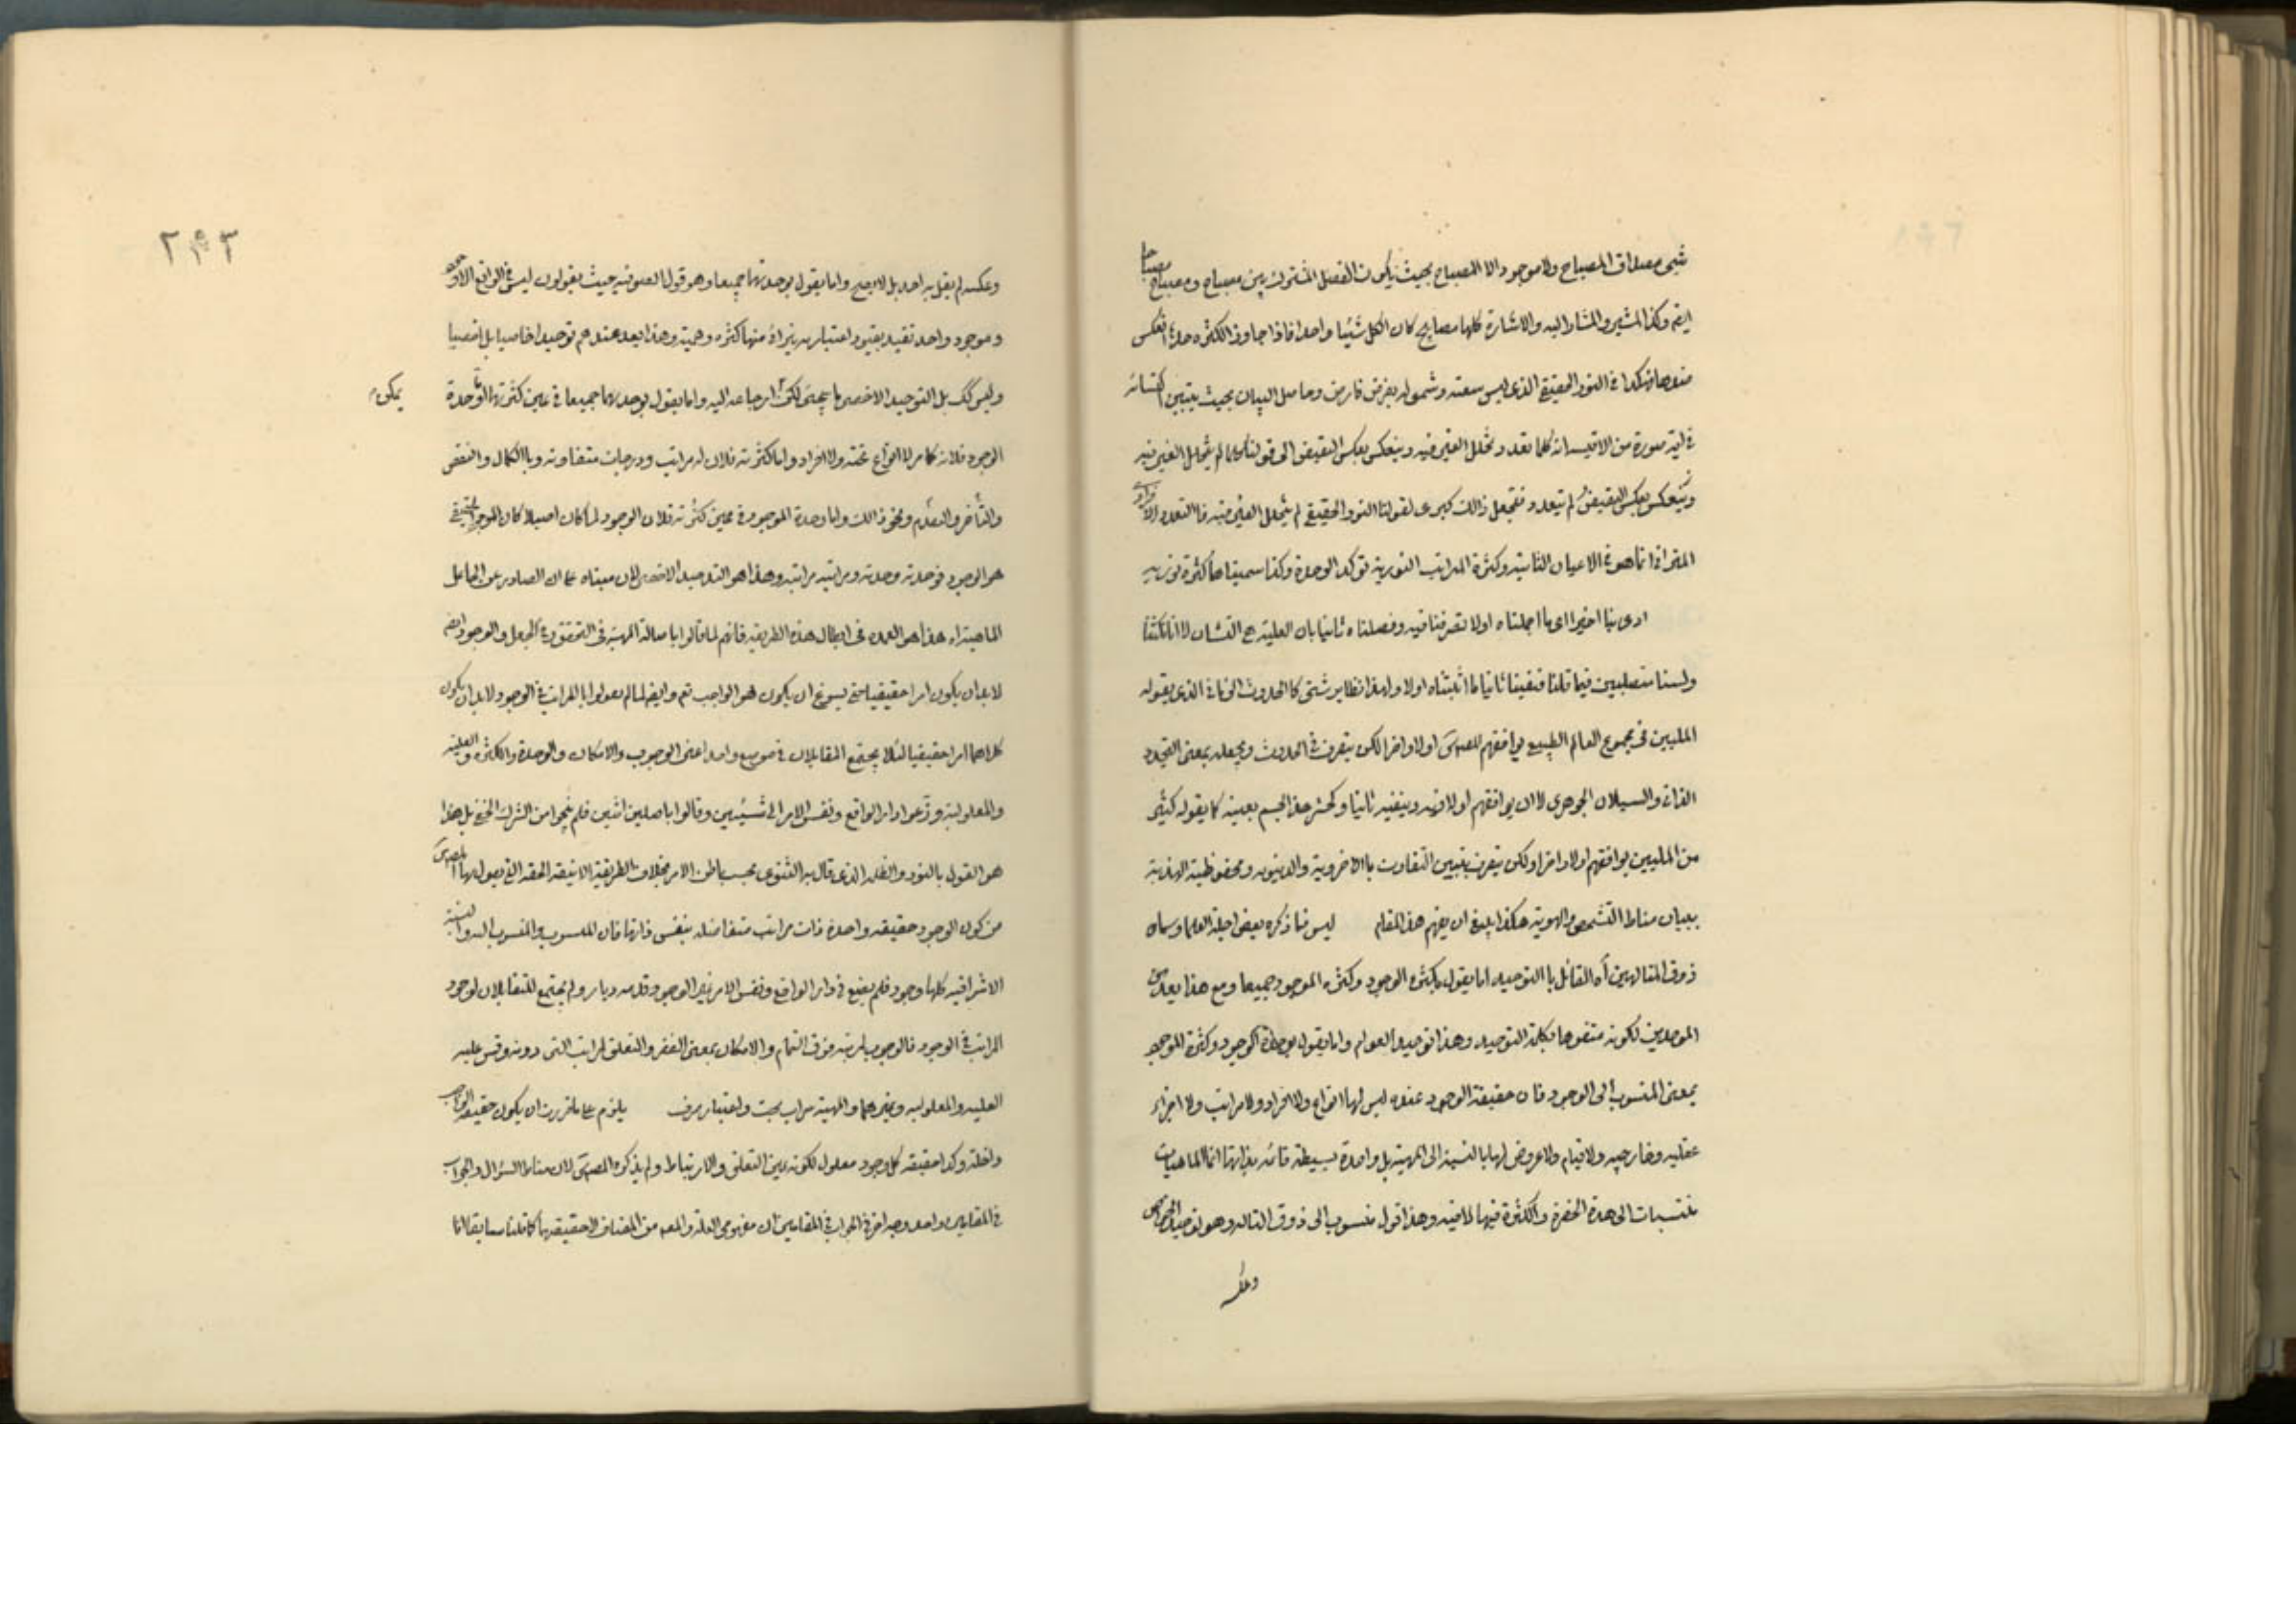 شیء مصداق المصباح ولا موجود الا المصباح بحيث يكون الفصل المشترك بين مصباح و مصباح مصباحا
ايضا وكذا المشير والمشار اليه والاشارة كلها مصابيح كان الكل شيئا واحدا فاذا جاوز الكثرة حدها انعكس
ضدها فهكذا في النور الحقيقي الذي ليس سعته وشموله بفرض فارض وحاصل البيان بحيث يتبين
صورة من الاقيسة انه كلما تعدد تخلل الغير فيه وينعكس بعكس النقيض الى قولنا كلما لم يتخلل الغير فيه
وينعكس بعكس النقيض لم يتعدد فنجعل ذلك كبرى لقولنا النور الحقيقي لم يتخلل الغير فيه فالتعدد
انما هو في الاعيان الثابتة وكثرة المراتب النورية تؤكد الوحدة وكذا سميناها كثرة نورية
ادى بنا اخيرا اى ما اجملناه اولا تصرفنا فيه وفصلناه ثانيا بان العلية هي التشأن لا انا نكثنا
ولسنا متصلبين فيما قلنا فنفينا ثانيا ما اثبتناه اولا ولهذا نظاير شتى كالحدوث الذي يقوله
المليين في مجموع العالم الطبيعي يوافقهم المصنف اولا واخرا لكن يتصرف في الحدوث ويجعله بمعنى التجدد
الذاتي والسيلان الجوهري لا ان يوافقهم اولا فيه وينفيه ثانيا وكحشر هذا الجسم بعينه كما يقوله كثير
من المليين يوافقهم اولا واخرا ولكن يتصرف بتبيين التفاوت بالاخروية والدنيوية ومحفوظية الهذية
ببيان مناط التشخص والهوية هكذا ينبغي ان يفهم هذا المقام ليس فيما ذكره بعض اجلة العلما وسماه
ذوق المتالهين اه القائل بالتوحيد اما يقول بكثرة الوجود وكثرة الموجود جميعا ومع هذا يعد من
الموحدين لكونه متفوها بكلمة التوحيد وهذا توحيد العوام واما يقول بوحدة الوجود وكثرة الموجود
بمعنى المنسوب الى الوجود فان حقيقة الوجود عنده ليس لها انواع ولا افراد ولا مراتب ولا اجزاء
عقليه وخارجيه ولا قيام ولا عروض لها بالنسبة الى المهية بل واحدة بسيطة قائمة بذاتها انما الماهيات
منتسبات الى هذة الحضرة والكثرة فيها لا فيه وهذا قول منسوب الى ذوق التاله وهو توحيد الخواص
وعكسه
٢٩٣
وعكسه لم يقل به احد بل لا يصح واما يقول بوحدتهما جميعا وهو قول الصوفيه حيث يقولون ليس في الواقع الا وجود
وموجود واحد تقيد بقيود اعتباريه يتراءى منها كثرة وهمية وهذا يعد عندهم توحيدا خاصيا بل اخصيا
وليس كك بل التوحيد الاخصى ما يجىء لكن ارجاعه اليه واما يقول بوحدتهما جميعا في عين كثرتهما اما وحدة
يمكن
الوجود فلانه كما مر لا انواع تحته ولا افراد واما كثرته فلان له مراتب ودرجات متفاوته وبالكمال والنقص
والتأخر والتقدم ونحو ذالك واما وحدة الموجود في عين كثرته فلان الوجود لما كان اصيلا كان الموجود الحقيقي
هو الوجود فوحدته وحدته ومراتبه مراتبه وهذا هو التوحيد الاخصى لان مبناه على ان الصادر عن الجاعل
الماهية اه هذا هو العمدة في ابطال هذه الطريقه فانهم لما قالوا باصالة المهية في التحقق وفي الجعل والوجود ايضا
لا بد ان يكون امرا حقيقيا حتى يسوغ ان يكون هو الواجب تم وايضا لما لم يقولوا بالمراتب في الوجود لا بد ان يكون
كلاهما امرا حقيقيا لئلا يجتمع المتقابلان في موضع واحد اعنى الوجوب والامكان والوحدة والكثرة والعلية
والمعلولية وزعوا دار الواقع ونفس الامر الى شيئين وقالوا باصلين اثنين فلم ينجوا من الشرك الخفي بل هذا
هو القول بالنور والظلمة الذي قال به الثنوى بحسب باطن الامر بخلاف الطريقة الانيقة الحقة التي يقول بها المصنف
من كون الوجود حقيقة واحدة ذات مراتب متفاضلة بنفس ذاتها فان المنسوب والمنسوب اليه والنسبة
الاشراقيه كلها وجود فلم يقع في دار الواقع ونفس الامر غير الوجود وقدسه ديار ولم يجتمع المتقابلان لوجود
المراتب في الوجود فالوجوب لمرتبة فوق التمام والامكان بمعنى الفقر والتعلق لمراتب التي دونه وقس عليه
العليه والمعلوليه وغيرهما والمهية سراب بحت واعتبار صرف يلزم على ما قررت ان يكون حقيقة الواجب
داخلة وكذا حقيقة كل وجود معلول لكونه عين التعلق والارتباط ولم يذكره المصنف لان مناط السؤال والجواب
في المقامين واحد وجه اخر في الجواب في المقامين ان مفهومى العلة والمعلول من المضاف لا حقيقتهما كما قلنا سابقا انا